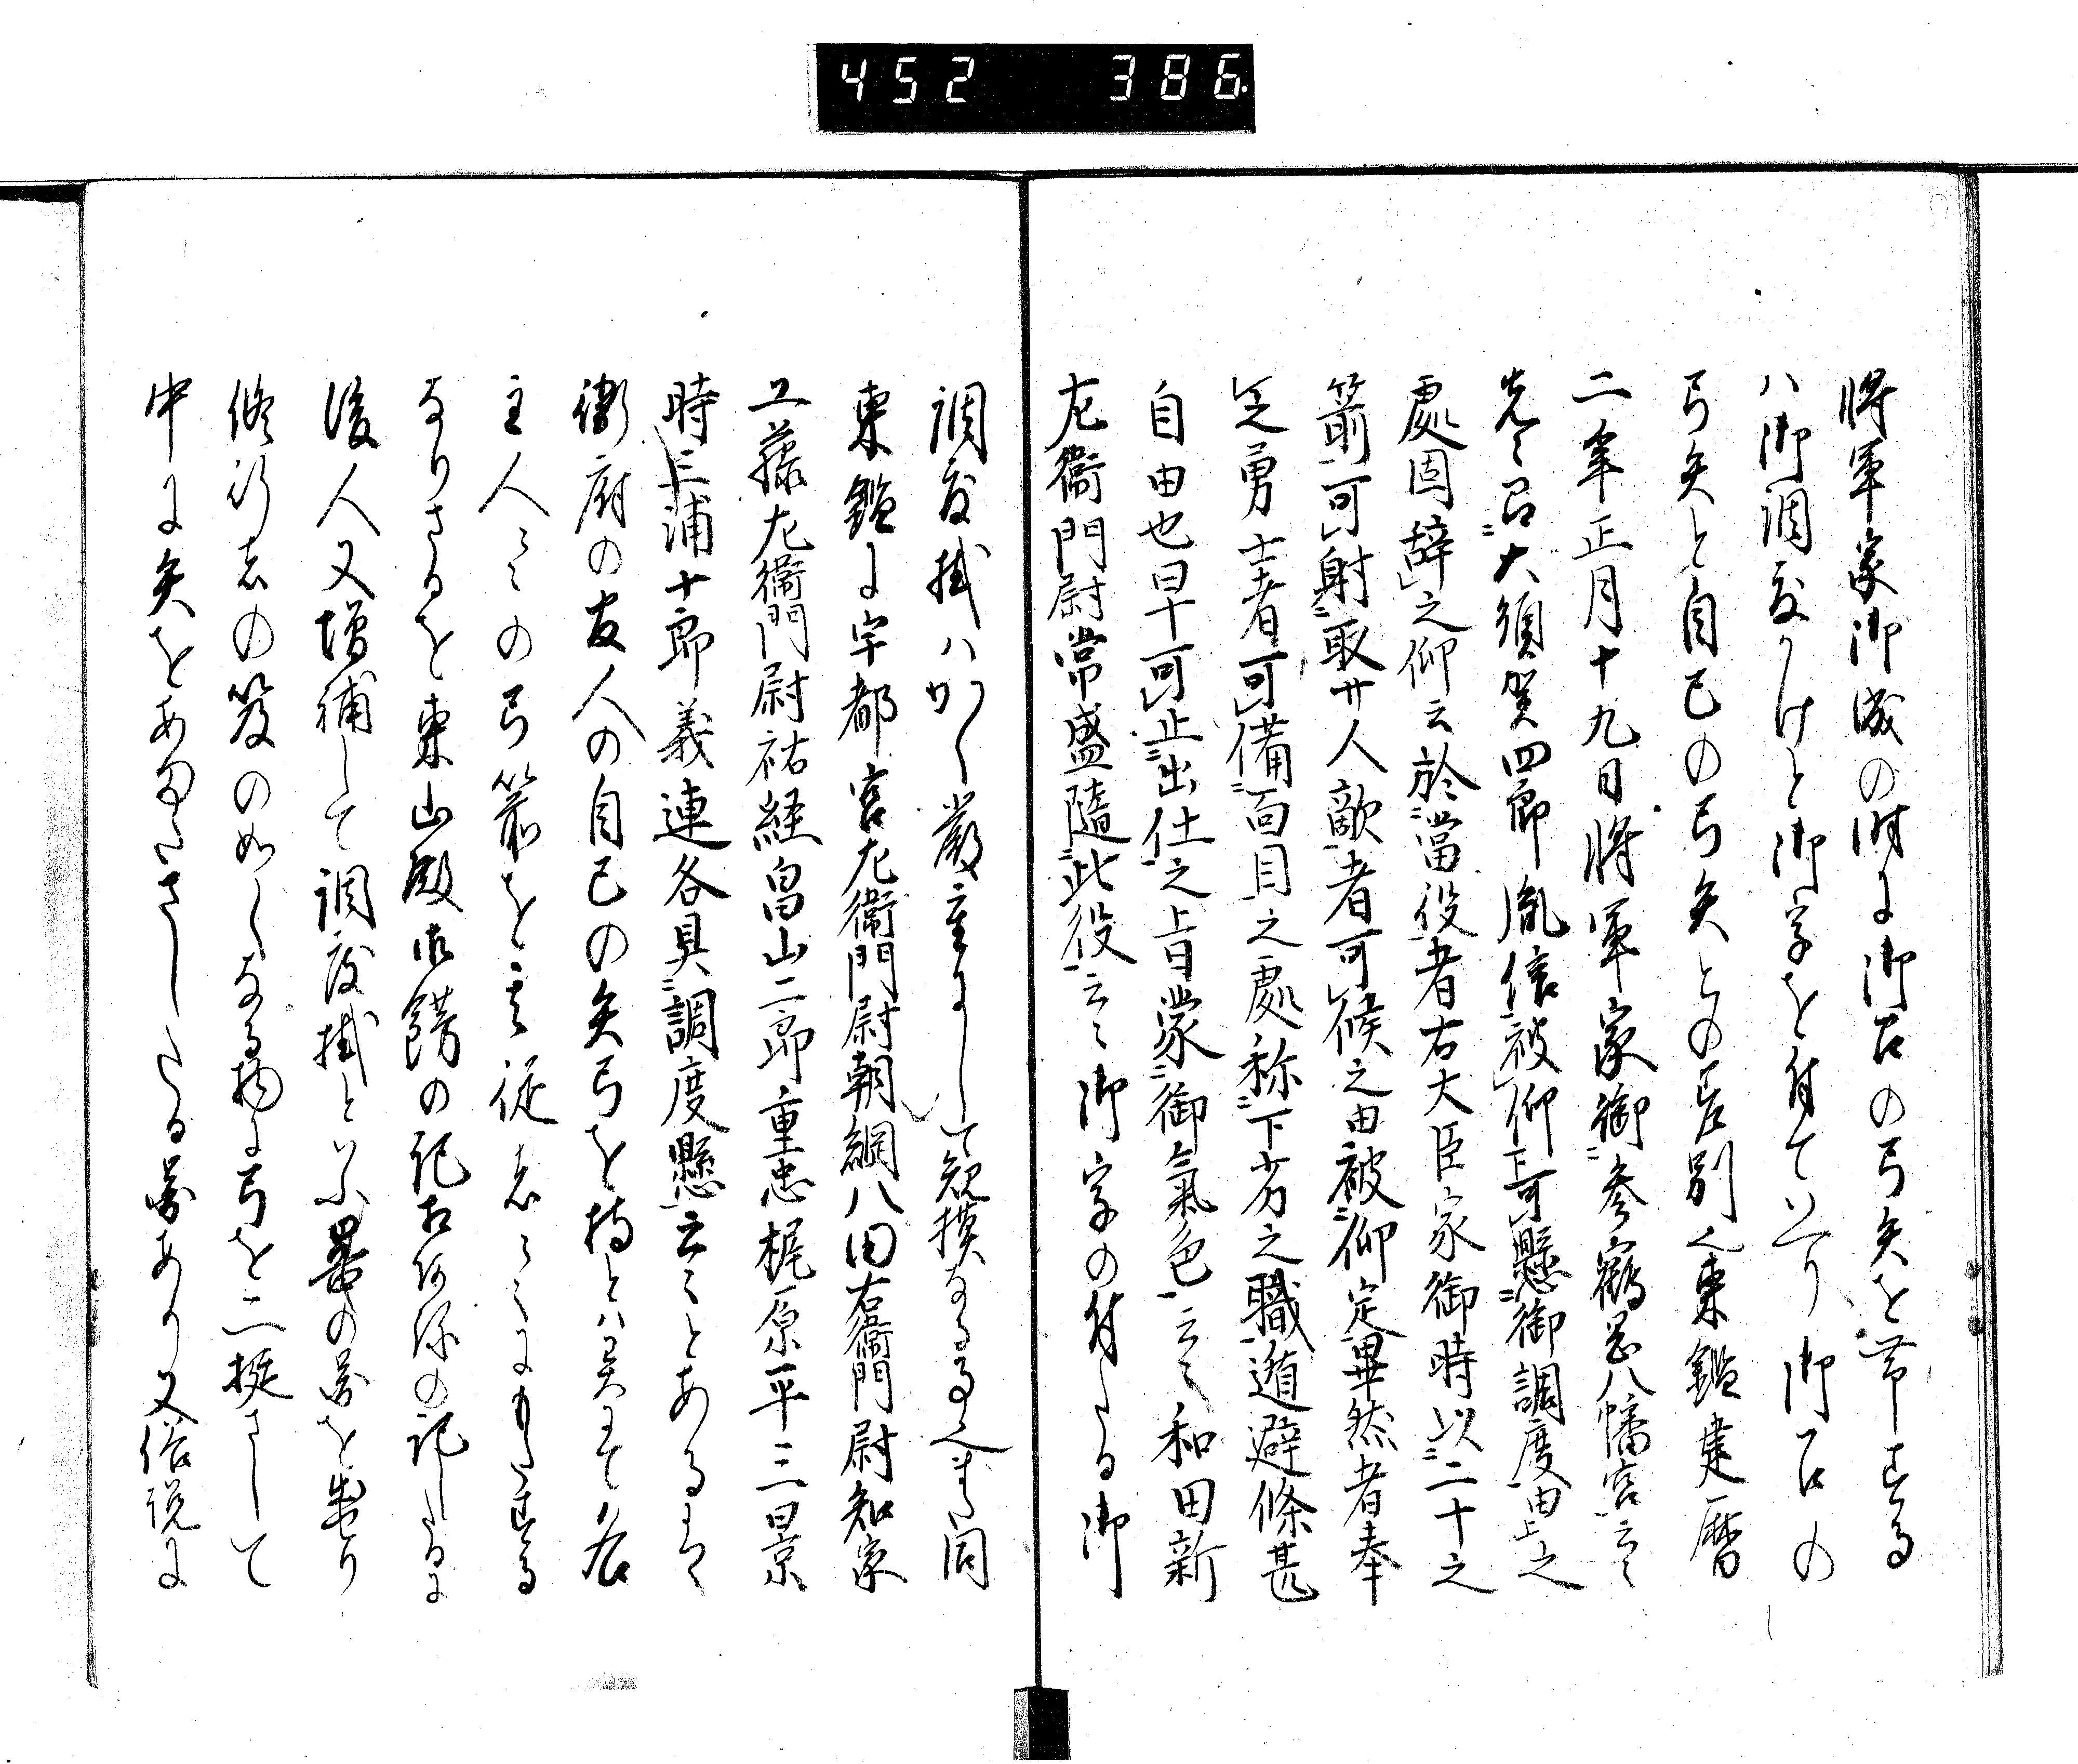 452 386
将軍家御成の時に御召の弓矢を帯する
ハ御調度かけと御字を付ていへり御召の
弓矢と自己の弓矢との差別也東鑑建暦
二年正月十九日将軍家御参鶴岡八幡宮云々
先々召大須賀四郎胤信被仰可懸御調度由之
處固辞之仰云於當役者右大臣家御時以二十之
箭可射取廿人敵者可候之由被仰定畢然者奉
之勇士者可備面目之處称下劣之職遁避條甚
自由也早可止出仕之旨蒙御氣色云々和田新
左衛門尉常盛随此役云々御字の付たる御
調度掛ハかく厳重にして規模なる事也又同
東鑑に宇都宮左衛門尉朝綱八田右衛門尉知家
工藤左衛門尉祐経畠山二郎重忠梶原平三景
時三浦十郎義連各具調度懸云々とあるは
衛府の友人の自己の矢弓を持とハ異にて名
主人々の弓箭を其従者々々にもたする
なりさるを東山殿御餝の記相阿弥の記したるに
後人又増補して調度掛といふ器の図を出せり
修行者の笈の如くなる物に弓を二挺さして
中に矢をあまたさしたる図あり又俗説に